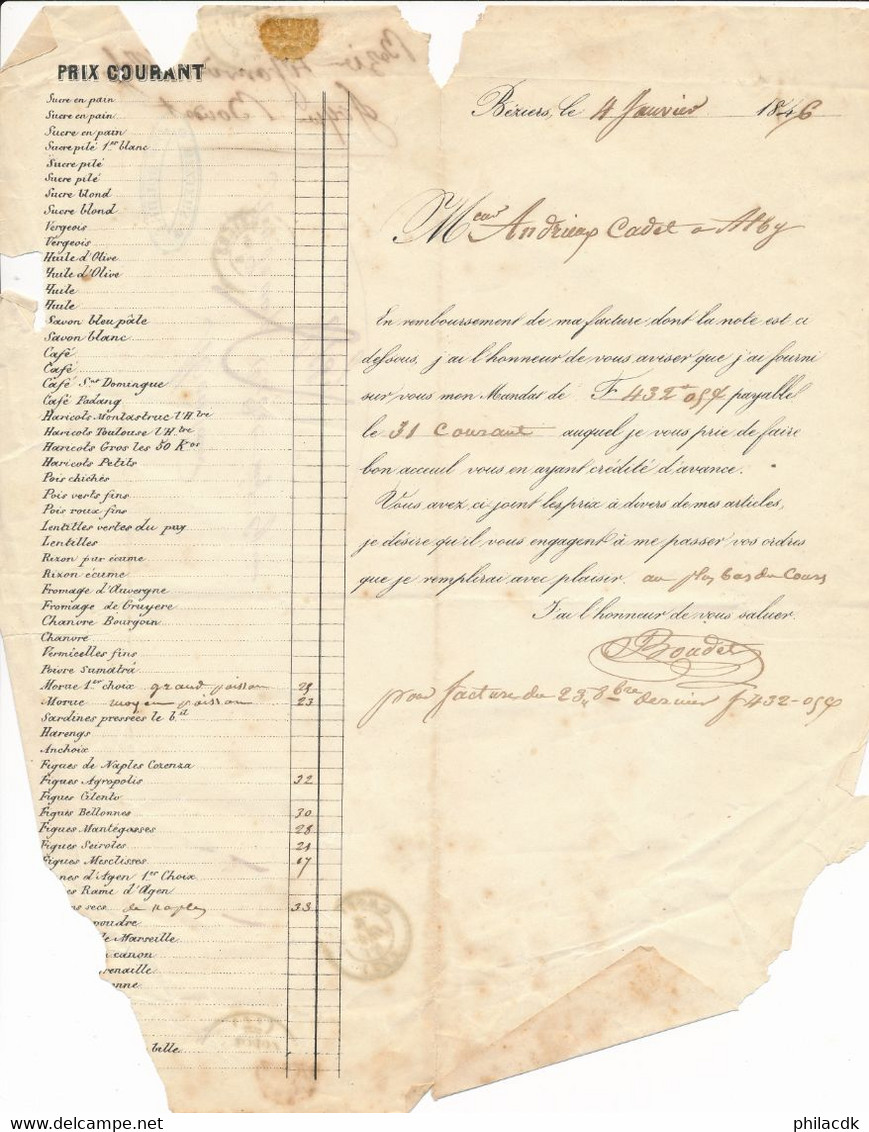 PRIX COURANT
Sucre en pain
Sucre en pain
Sucre en pain
Sucre pilé 1er blanc
Sucre pilé
Sucre pilé
Sucre blond
Sucre blond
Vergeois
Vergeois
Huile d'Olive
Huile d'Olive
Huile
Huile
Savon bleu pâle
Savon blanc
Café
Café
Café Sne Domingue
Café Padang
Haricots Montastruc l'Htre
Haricots Toulouse l'Htre
Haricots Gros les 50 Kos
Haricots Petits
Pois chichés
Pois verts fins
Pois roux fins
Lentilles vertes du pay
Lentilles
Rizon par écume
Rizon écume
Fromage d'Auvergne
Fromage de Gruyere
Chanvre Bourgoin
Chanvre
Vermicelles fins
Poivre Sumatrá
Morue 1er choix grand poisson 25
Morue moyen poisson 23
Sardines pressées le bil
Harengs
Anchoix
Figues de Naples Cozenza
Figues Agropolis 32
Figues Cilento
Figues Bellonnes 30
Figues Mantégosses 28
Figues Seiroles 21
Figues Mesclisses 17
nes d'Agen 1er Choix
es Rame d'Agen
ns secs de naples 33
poudre
le Marseille
canon
renaille
onne
bille
Béziers, le 4 Janvier 1846
Meur Andrieux Cadet a Alby
En remboursement de ma facture dont la note est ci
dessous, j'ai l'honneur de vous aviser que j'ai fourni
sur vous mon Mandat de F 432-05 payable
le 31 Courant auquel je vous prie de faire
bon acceuil vous en ayant crédité d'avance.
Vous avez ci joint les prix à divers de mes articles,
je désire qu'il vous engagent à me passer vos ordres
que je remplirai avec plaisir. au plus bas du Cours
J'ai l'honneur de vous saluer.
Boudet
pour facture du 23 8bre dernier f 432-05
philacdk